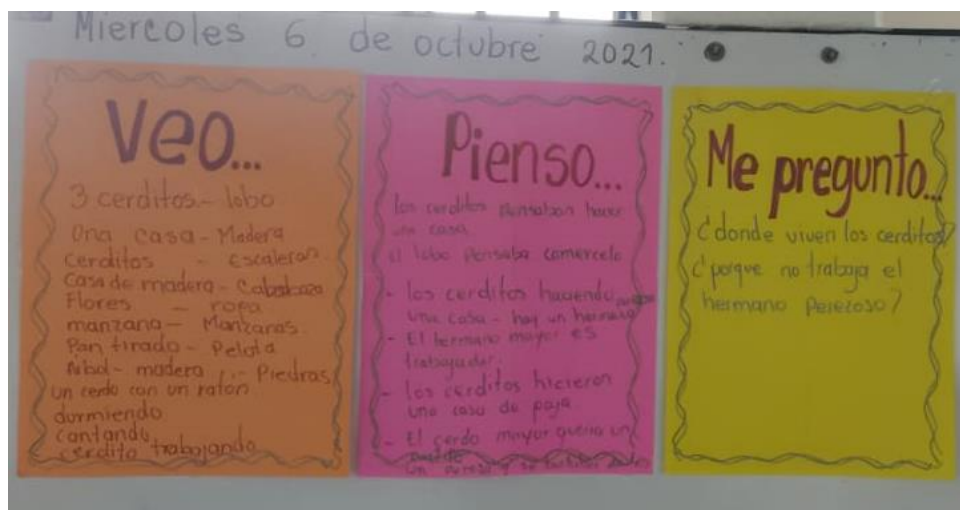 Miercoles 6 de octubre 2021.
Veo...
3 cerditos - lobo
Una casa - Madera
Cerditos - Escaleras.
Casa de madera -
Flores - ropa
manzana - Manzanas.
Pan tirado - Pelota
Arbol - madera - Piedras
un cerdo con un raton
dormiendo
cantando
cerdito trabajando
Pienso...
los cerditos pensaban hacer
una casa
el lobo pensaba comercelo
- los cerditos haciendo
una casa - hay un hermano
- El hermano mayor es
trabajador.
- los cerditos hicieron
una casa de paja
- El cerdo mayor queria un
Me pregunto...
¿donde viven los cerditos?
¿porque no trabaja el
hermano perezoso?